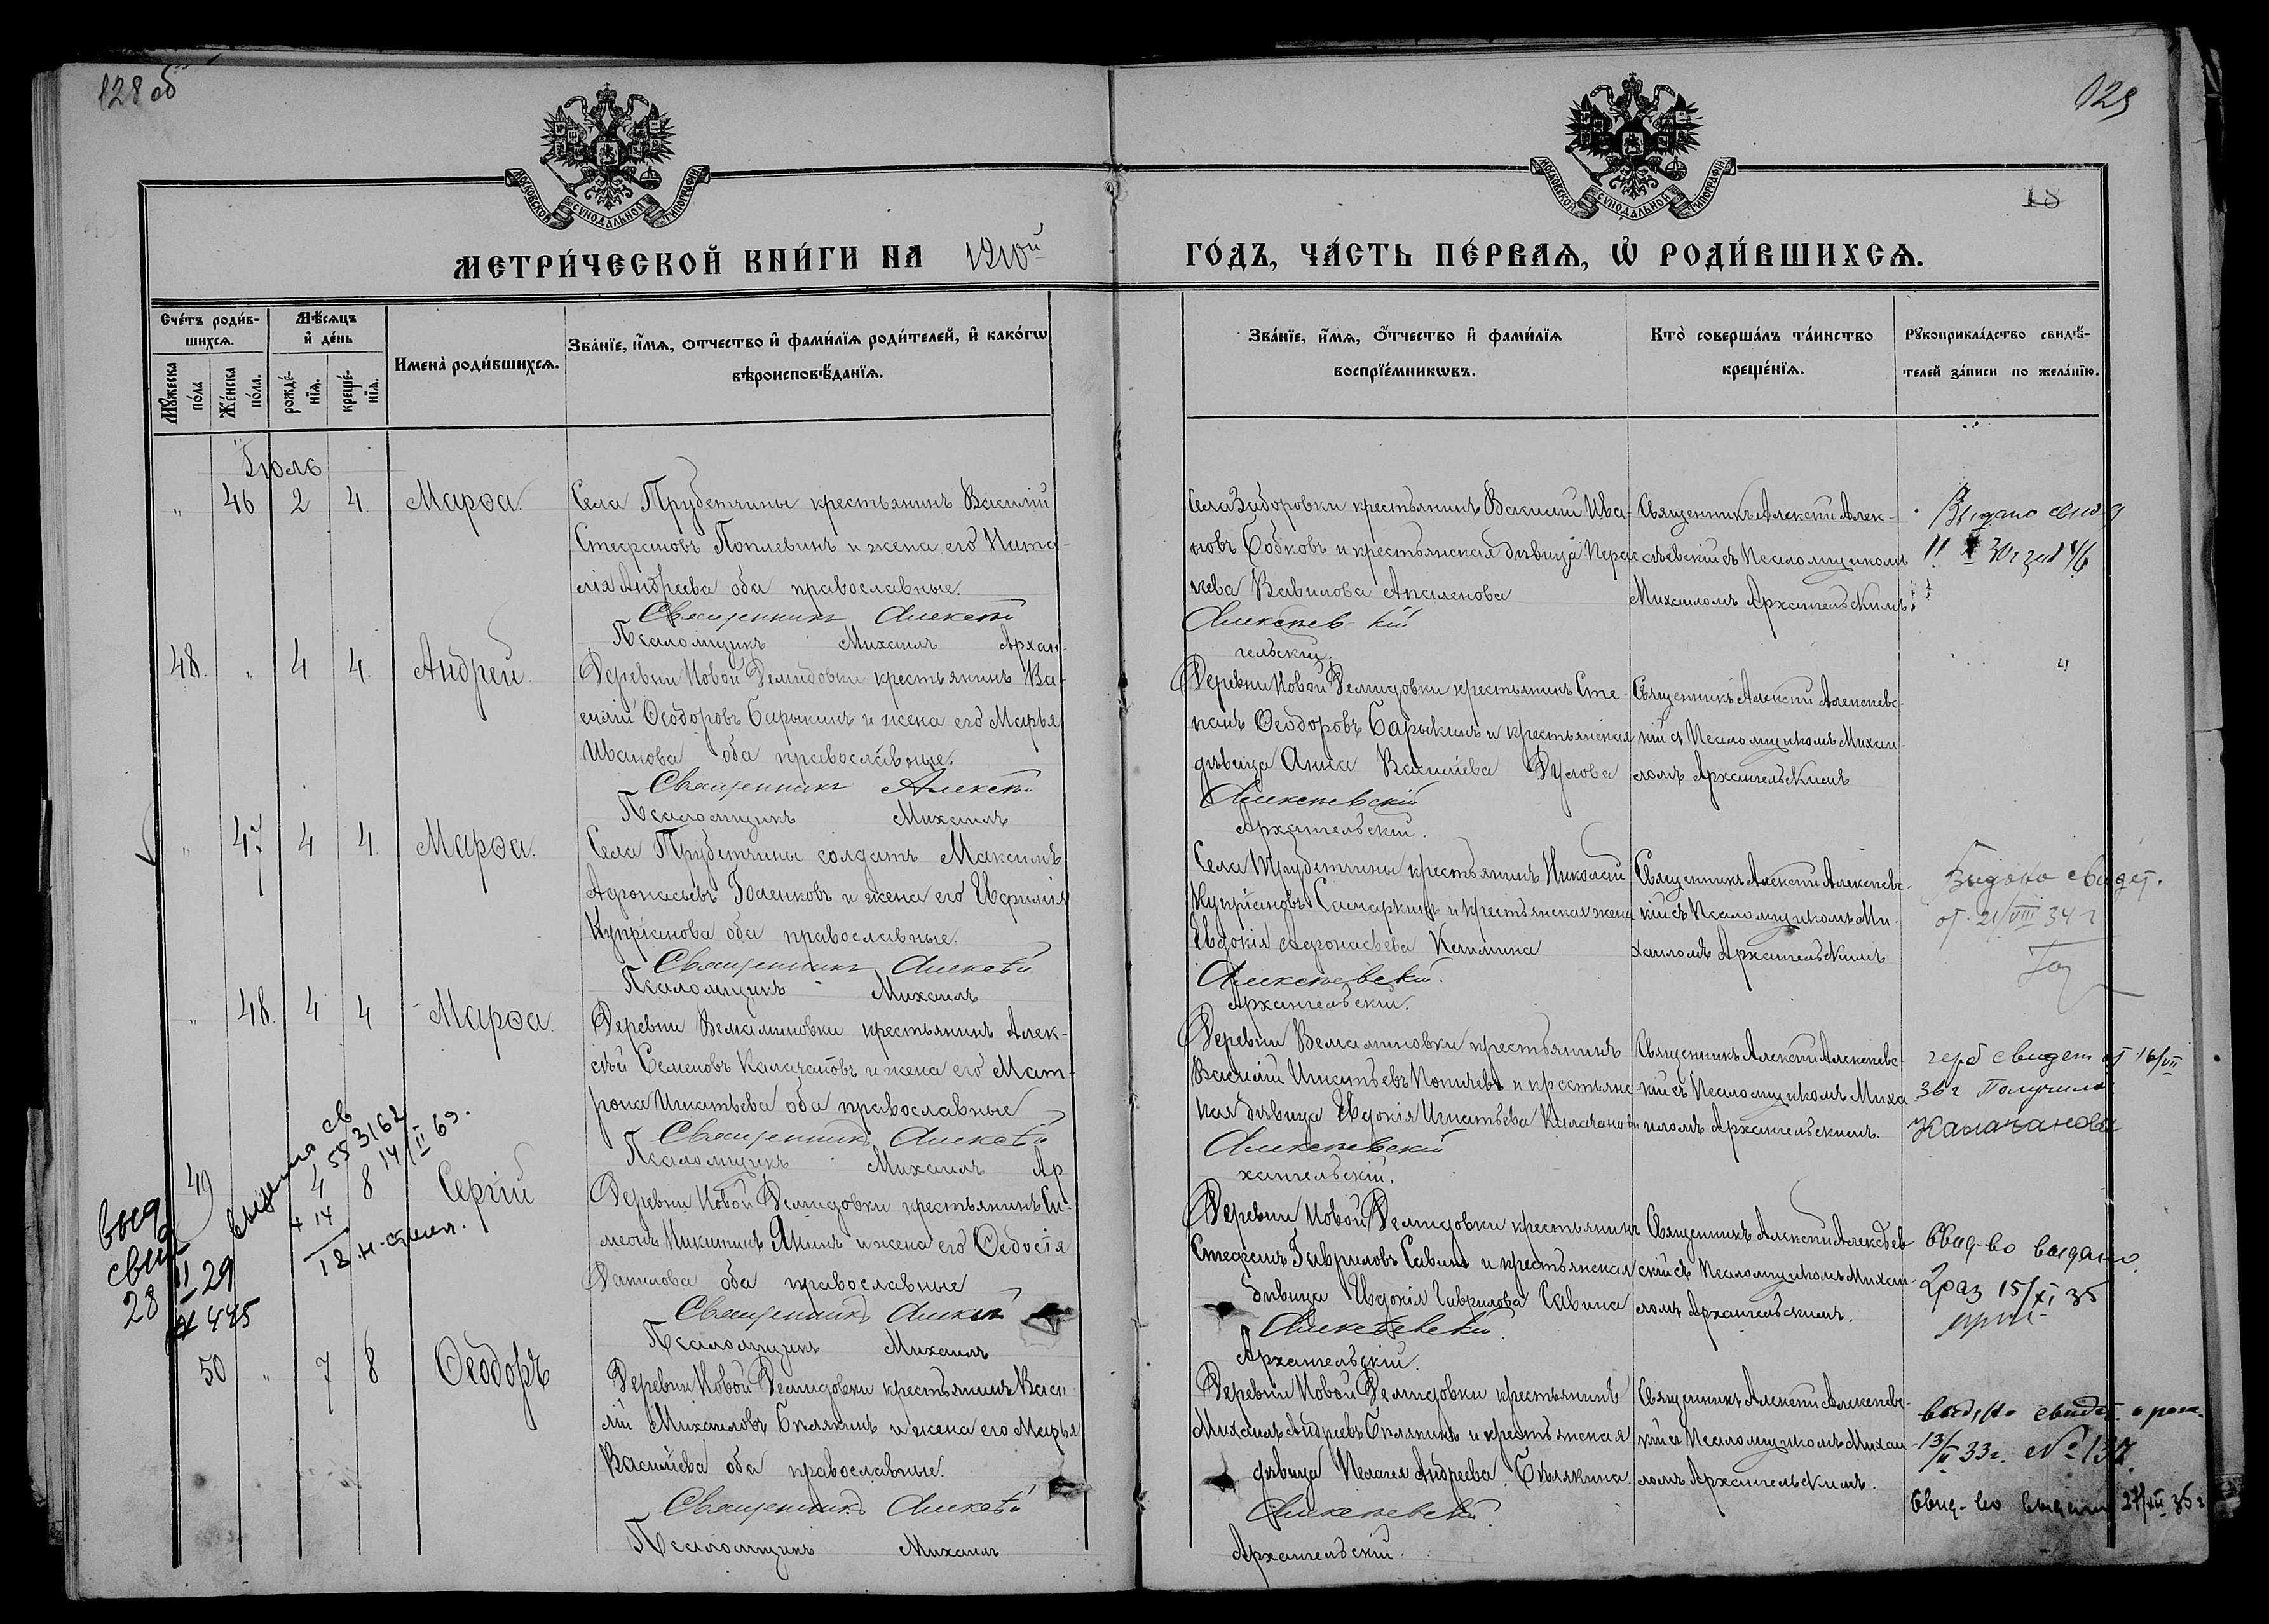 128 об
129
18
МОСКОВСКОЙ СѴНОДАЛЬНОЙ ТИПОГРАФІИ
МОСКОВСКОЙ СѴНОДАЛЬНОЙ ТИПОГРАФІИ
МЕТРИ́ЧЕСКОЙ КНИ́ГИ НА 1910й
ГО́ДЪ, ЧА́СТЬ ПЕ́РВАѦ, Ѡ҆ РОДИ́ВШИХСѦ.
Сче́тъ роди́в-
шихсѧ.
Мꙋжеска по́ла
Же́нска по́ла.
Мѣ́сѧцъ
и҆ де́нь
рожде́-
нїѧ.
креще́-
нїѧ.
Имена̀ роди́вшихсѧ.
Зва́нїе, и҆́мѧ, ѻтчество и҆ фамн́лїѧ роди́телей, и҆ како́гѡ
вѣроисповѣ́данїѧ.
Зва́нїе, и҆́мѧ, ѻ҆́тчество и҆ фами́лїѧ
воспрїе́мникѡвъ.
Кто̀ соверша́лъ та́инство
креще́нїѧ.
Рꙋкоприкла́дство свидѣ́-
телей за́писи по жела́нїю.
Іюль
" 46 2 4. Марѳа.
Села Прудетчины крестьянинъ Василій
Стефановъ Поплевинъ и жена его Ната-
лія Андреева оба православные.
Священникъ Алексѣй
Псаломщикъ Михаилъ Архан-
Села Задоровки крестьянинъ Василий Ива-
новъ Бобковъ и крестьянская дѣвица Парас
кева Вавилова Апаленова
Алексѣевскій
гельскій.
Священникъ Алексѣй Алек-
сѣевскій съ Псаломщикомъ
Михаиломъ Архангельскимъ
Выдано свид
48. " 4 4. Андрей.
Деревни Новой Демидовки крестьянинъ Ва-
силій Ѳеодоровъ Барыкинъ и жена его Марья
Иванова оба православные.
Священникъ Алексѣй
Псаломщикъ Михаилъ
Деревни Новой Демидовки крестьянинъ Сте-
панъ Ѳеодоровъ Барыкинъ и крестьянская
дѣвица Анна Васильева Дулова
Алексѣевскій
Архангельскій.
Священникъ Алексѣй Алексѣевс-
кій съ Псаломщикомъ Михаи-
ломъ Архангельскимъ
" 47 4 4. Марѳа.
Села Прудетчины солдатъ Максимъ
Афонасьевъ Голенковъ и жена его Евфимія
Купріанова оба православные.
Священникъ Алексѣй
Псаломщикъ Михаилъ
Села Прудетчины крестьянинъ Николай
Купріановъ Самаркинъ и крестьянская жена
Евдокія Афонасьева Калинина
Алексѣевскій.
Архангельскій.
Священникъ Алексѣй Алексѣевс-
кій съ Псаломщикомъ Ми-
хаиломъ Архангельскимъ
Видано свидет.
от. 21/VIII 34 г
" 48. 4 4 Марѳа.
Деревни Вельяминовки крестьянинъ Алек-
сѣй Семеновъ Калачановъ и жена его Мат-
рона Игнатьева оба православные
Священникъ Алексѣй
Псаломщикъ Михаилъ Ар
Деревни Вельяминовки крестьянинъ
Василій Игнатьевъ и крестьянс-
кая дѣвица Евдокія Игнатьева Калачанов
Алексѣевскій
хангельскій.
Священникъ Алексѣй Алексѣевс-
кій съ Псаломщикомъ Миха
иломъ Архангельскимъ.
свидет от 16/VII
36 г Получила
Калачанова
49 4 8 Сергій
+ 14
18 н-стил.
выдано св
553162
14/II 69.
выд
свид
28 II 29
№ 445
Деревни Новой Демидовки крестьянинъ Си-
меонъ Никитинъ Янинъ и жена его Ѳедосія
Данилова оба православные
Священникъ Алексѣй
Псаломщикъ Михаилъ
Деревни Новой Демидовки крестьянинъ
Стефанъ Гавриловъ Савинъ и крестьянская
дѣвица Евдокія Гаврилова Савина
Алексѣевскій.
Архангельскій.
Священникъ Алексѣй Алексѣев
скій съ Псаломщикомъ Михаи-
ломъ Архангельскимъ.
Свид-во выдано
2 раз 15/XI 35
50 " 7 8 Ѳеодоръ
Деревни Новой Демидовки крестьянинъ Васи
лій Михаиловъ Белякинъ и жена его Марья
Васильева оба православные.
Священникъ Алексѣй
Псаломщикъ Михаилъ
Деревни Новой Демидовки крестьянинъ
Михаилъ Андреевъ Белякинъ и крестьянская
дѣвица Пелагея Андреева Белякина
Алексѣевскій.
Архангельскій.
Священникъ Алексѣй Алексѣевс-
кій съ Псаломщикомъ Михаи
ломъ Архангельскимъ.
свидет. о рож.
13/II 33 г. № 137
Свид-во выдано 27/XII 35 г